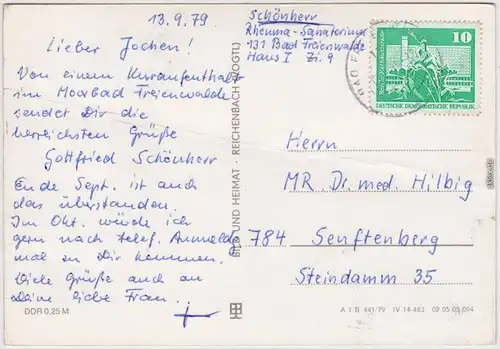 13.9.79
Lieber Jochen!
Von einem Kuraufenthalt
im Moorbad Freienwalde
sendet Dir die
herzlichsten Grüße
Gottfried Schönherr
Ende Sept. ist auch
das überstanden.
Im Okt. würde ich
gern nach telef. Anmeldg
mal zu Dir kommen.
Viele Grüße auch an
Deine liebe Frau.
DDR 0,25 M
BILD UND HEIMAT · REICHENBACH (VOGTL)
Schönherr
Rheuma-Sanatorium
131 Bad Freienwalde
Haus I Zi. 9
BAD F
10
DEUTSCHE DEMOKRATISCHE REPUBLIK
Herrn
MR. Dr. med. Hilbig
784 Senftenberg
Steindamm 35
A 1 B 441/79 IV-14-483 02 05 03 094